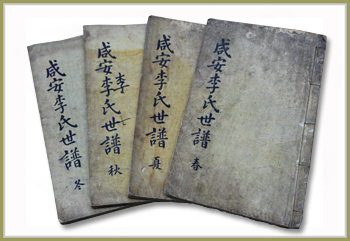 咸安李氏世譜
冬
咸安李氏世譜
李
秋
咸安李氏世譜
夏
咸安李氏世譜
春